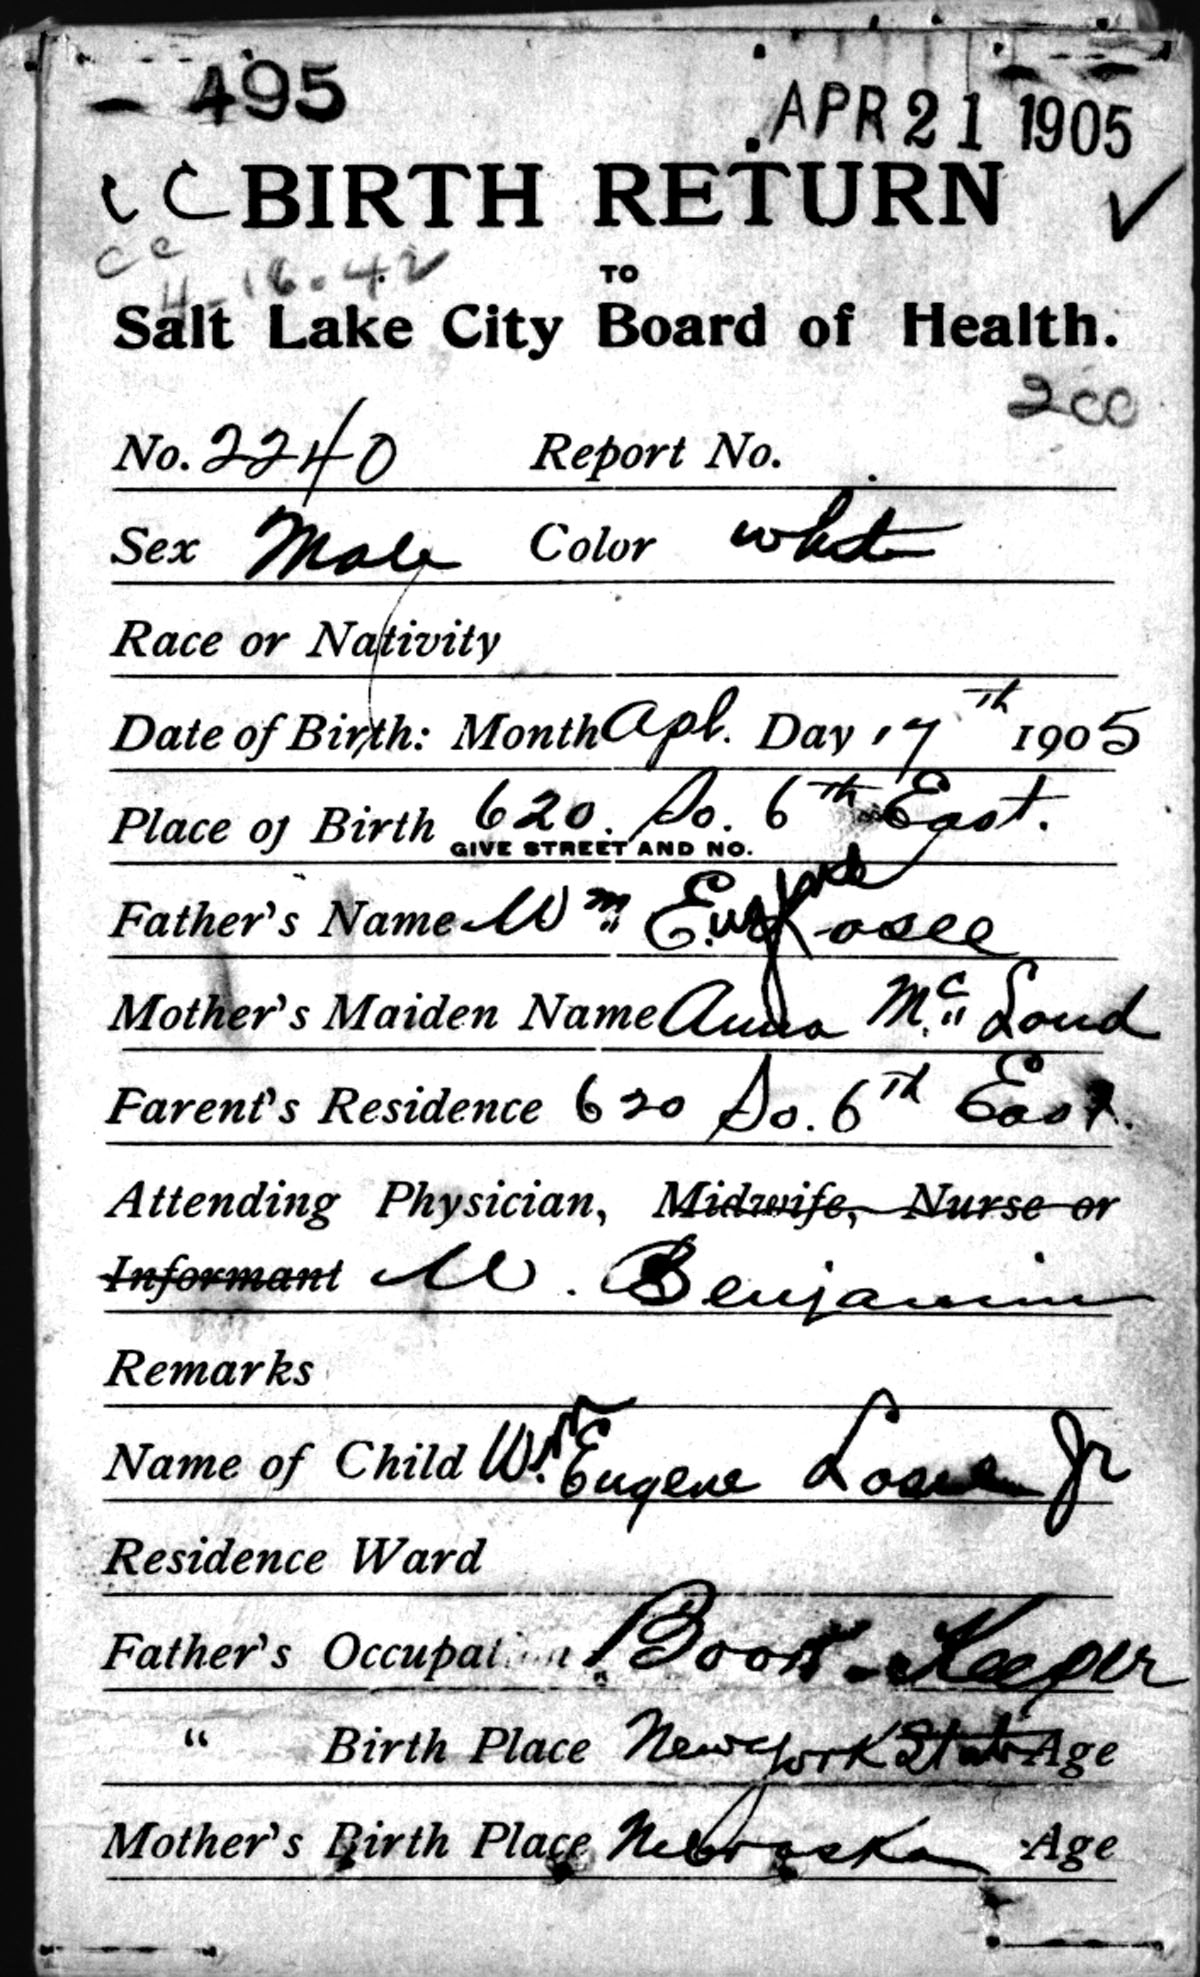 495
APR 21 1905
CC BIRTH RETURN ✓
cc
4-16-42 ✓
TO
Salt Lake City Board of Health.
200
No. 2240 Report No.
Sex Male Color white
Race or Nativity
Date of Birth: Month Apl. Day 17th 1905
Place of Birth 620. So. 6th East.
GIVE STREET AND NO.
Father's Name Wm Eugene Losee
Mother's Maiden Name Anna Mc Loud
Parent's Residence 620 So. 6th East.
Attending Physician, Midwife, Nurse or
Informant W. Benjamin
Remarks
Name of Child Wm. Eugene Losee Jr
Residence Ward
Father's Occupation Book-Keeper
" Birth Place New York State Age
Mother's Birth Place Nebraska Age